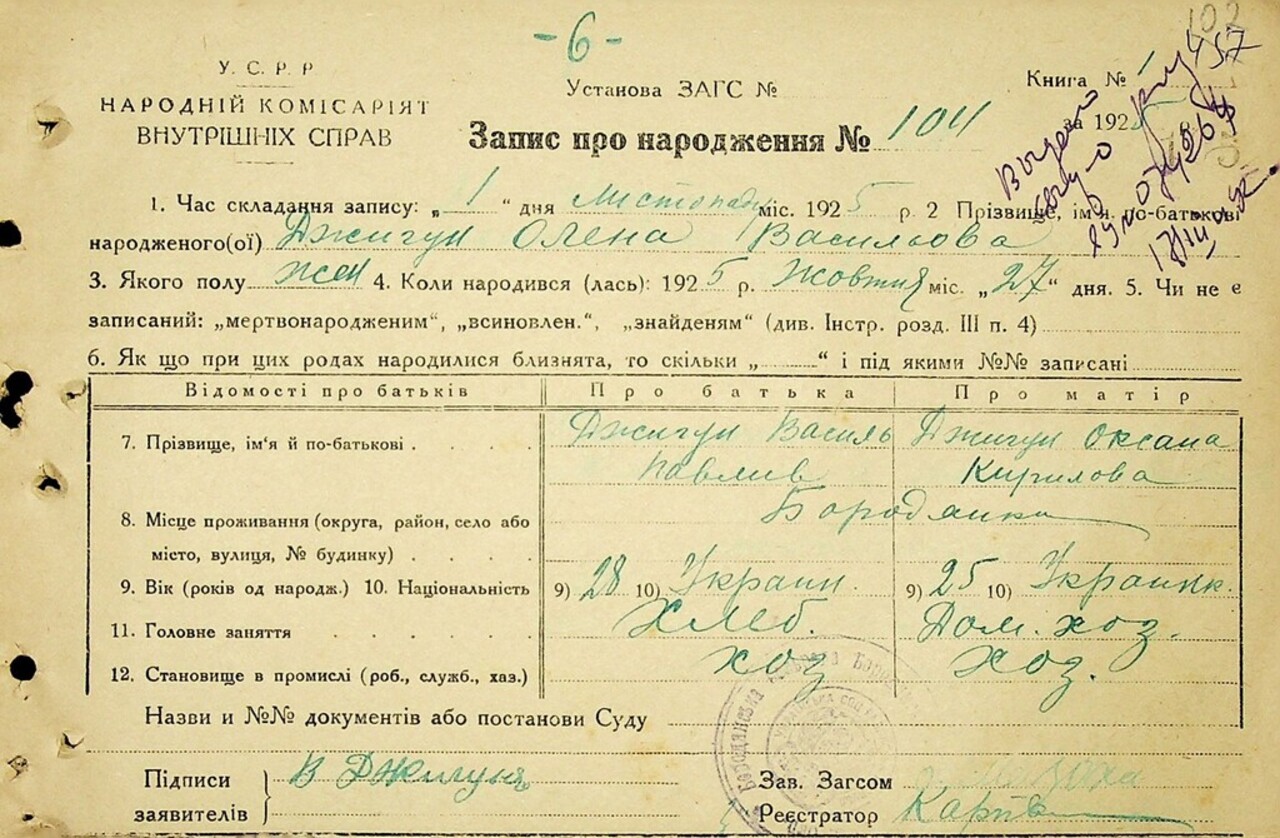 102
- 6 -
457
У. С. Р. Р
Установа ЗАГС №
Книга № 1
НАРОДНІЙ КОМІСАРІЯТ
ВНУТРІШНІХ СПРАВ
Запис про народження № 104
за 1925 р.
1. Час складання запису: „ 1 “ дня Листопада міс. 1925 р. 2 Прізвище, ім'я, по-батькові
народженого(ої) Джигун Олена Васильова
3. Якого полу жен 4. Коли народився (лась): 1925 р. Жовтня міс. „27“ дня. 5. Чи не є
записаний: „мертвонародженим“, „всиновлен.“, „знайденям“ (див. Інстр. розд. III п. 4)
6. Як що при цих родах народилися близнята, то скільки „ “ і під якими №№ записані
Відомості про батьків Про батька Про матір
7. Прізвище, ім'я й по-батькові . . . . Джигун Василь Джигун Оксана
Павлив Кирилова
8. Місце проживання (округа, район, село або Бородянка
місто, вулиця, № будинку) . . . .
9. Вік (років од народж.) 10. Національність 9) 28 10) Украин. 9) 25 10) Украинк.
11. Головне заняття . . . . . Хлеб. Дом. хоз.
12. Становище в промислі (роб., служб., хаз.) хоз хоз.
Назви и №№ документів або постанови Суду
Підписи В Джигуня Зав. Загсом
заявителів Реєстратор